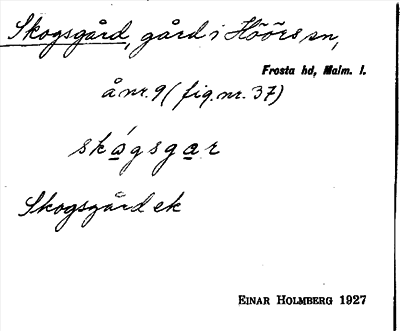 Skogsgård, gård i Höörs sn,
Frosta hd, Malm. l.
å nr. 9 (fig. nr. 37)
skǻgsgar
Skogsgård ek
EINAR HOLMBERG 1927